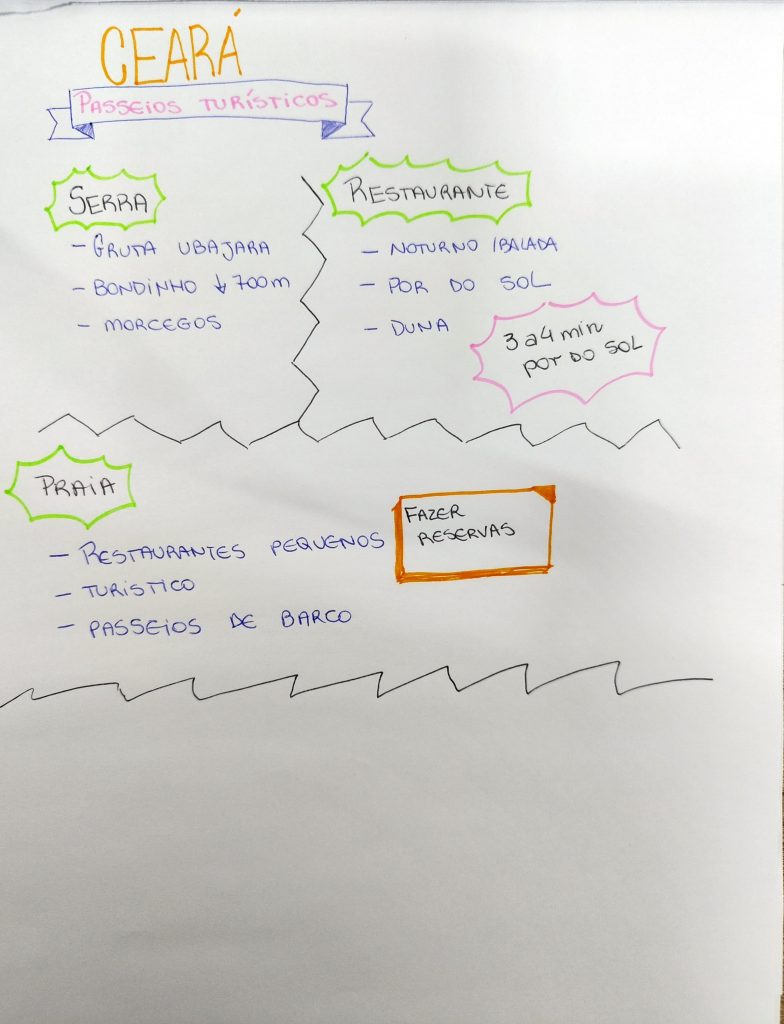 CEARÁ
PASSEIOS TURÍSTICOS
SERRA
- GRUTA UBAJARA
- BONDINHO ↓ 700m
- MORCEGOS
RESTAURANTE
- NOTURNO /BALADA
- POR DO SOL
- DUNA
3 a 4 min
POT DO SOL
PRAIA
- RESTAURANTES PEQUENOS
- TURISTICO
- PASSEIOS DE BARCO
FAZER
RESERVAS